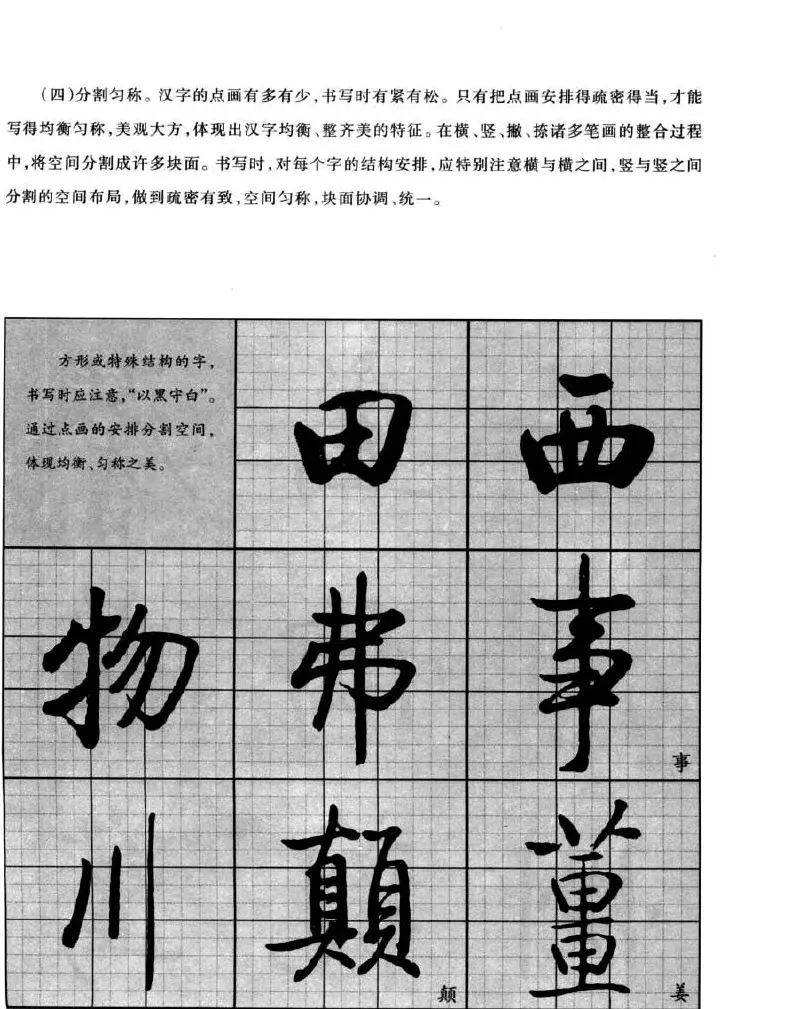 (四)分割匀称。汉字的点画有多有少,书写时有紧有松。只有把点画安排得疏密得当,才能
写得均衡匀称,美观大方,体现出汉字均衡、整齐美的特征。在横、竖、撇、捺诸多笔画的整合过程
中,将空间分割成许多块面。书写时,对每个字的结构安排,应特别注意横与横之间,竖与竖之间
分割的空间布局,做到疏密有致,空间匀称,块面协调、统一。
方形或特殊结构的字,
书写时应注意,“以黑守白”。
通过点画的安排分割空间,
体现均衡、匀称之美。
田 西
物 弗 事
事
川 顛 薑
颠 姜